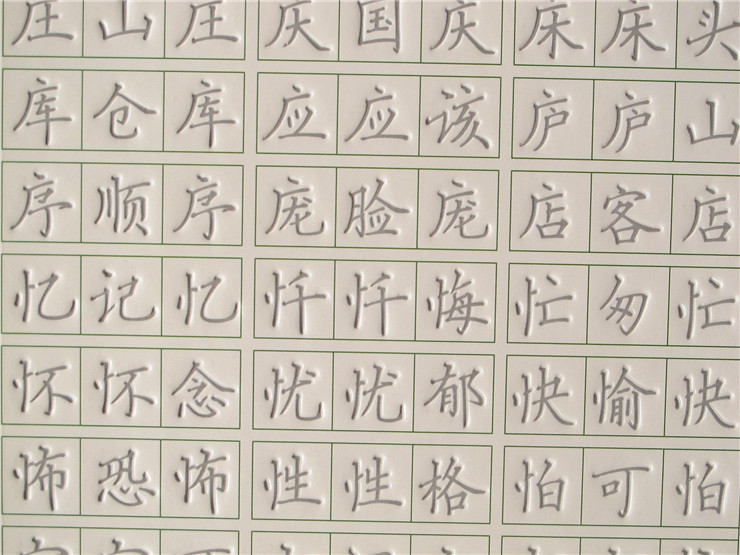 庄山庄 庆国庆 床床头
库仓库 应应该 庐庐山
序顺序 庞脸庞 店客店
忆记忆 忏忏悔 忙匆忙
怀怀念 忧忧郁 快愉快
怖恐怖 性性格 怕可怕